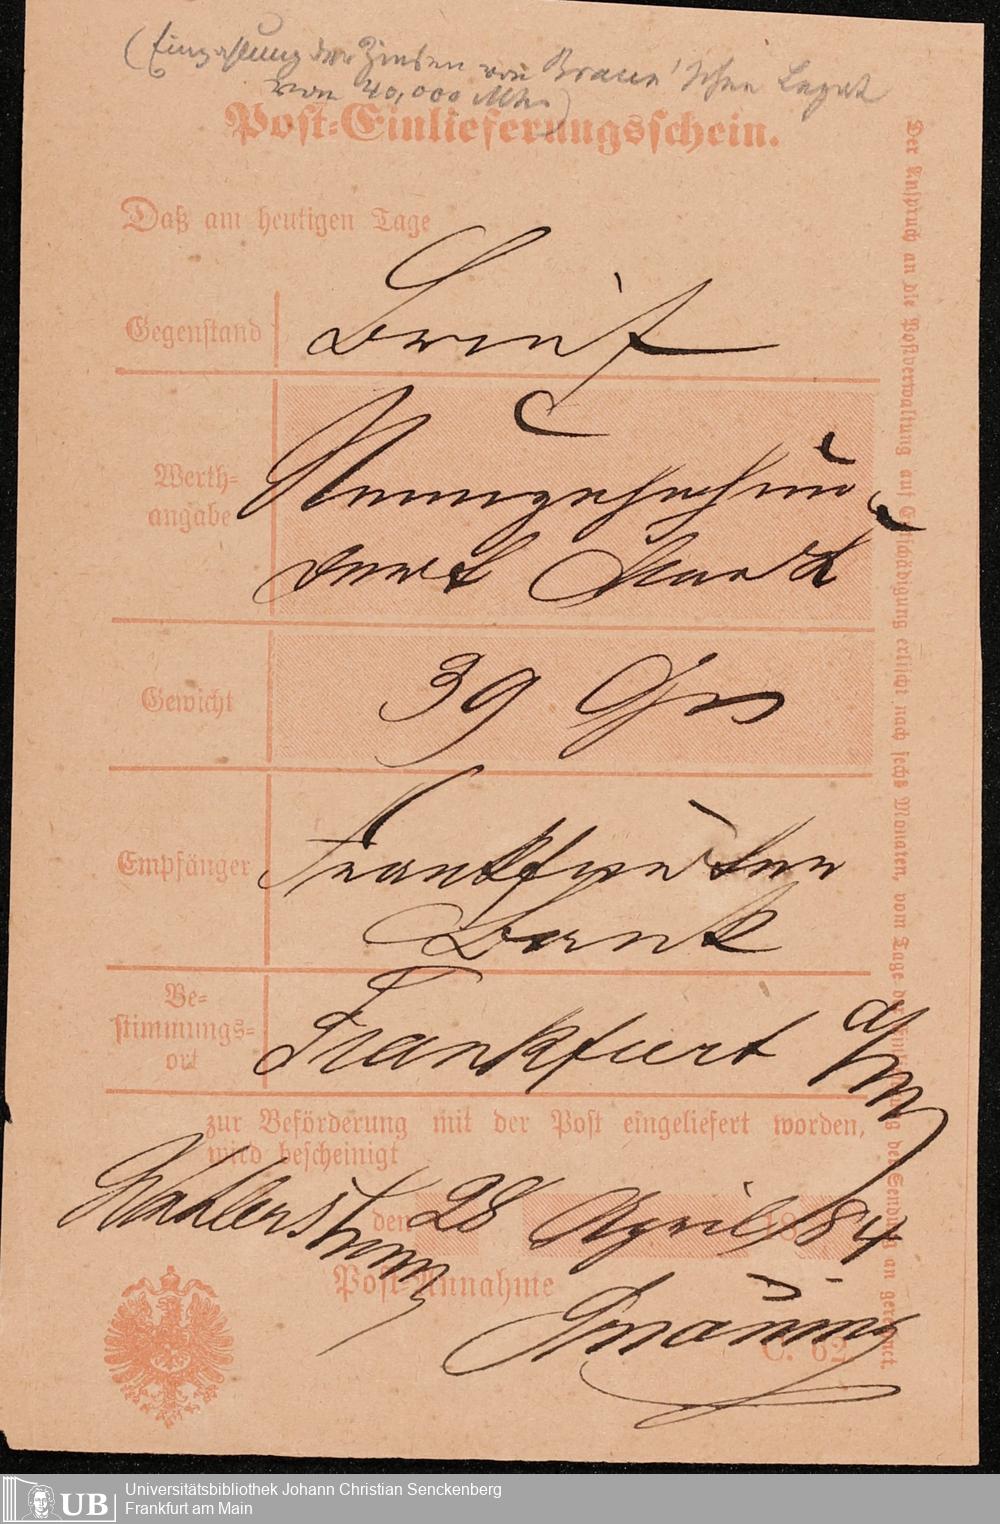 (Einzahlung der Zinsen von Braun'schen Legat
von 40,000 Mk.)
Post-Einlieferungsschein.
Daß am heutigen Tage
Gegenstand Brief
Werth-
angabe Neunzehnhun
dert Mark
Gewicht 39 Grs
Empfänger Frankfurter
Bank
Be-
stimmungs-
ort Frankfurt a/m
zur Beförderung mit der Post eingeliefert worden,
wird bescheinigt
den 28 April 1884
Post-Annahme
C. 62
Der Anspruch an die Postverwaltung auf Entschädigung erlischt nach sechs Monaten, vom Tage der Einlieferung der Sendung an gerechnet.
UB
Universitätsbibliothek Johann Christian Senckenberg
Frankfurt am Main